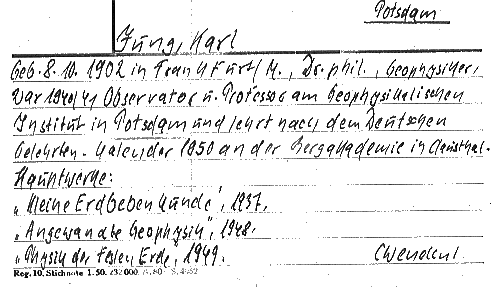 Potsdam
Jung, Karl
Geb. 8. 10. 1902 in Frankfurt/M., Dr. phil., Geophysiker,
war 1940/41 Observator u. Professor am Geophysikalischen
Institut in Potsdam und lehrt nach dem Deutschen
Gelehrten-Kalender 1950 an der Bergakademie in Clausthal.
Hauptwerke:
„Kleine Erdbebenkunde", 1937,
„Angewandte Geophysik", 1948.
„Physik der festen Erde", 1949.
Reg. 10. Stichnote 1. 50. 232000.